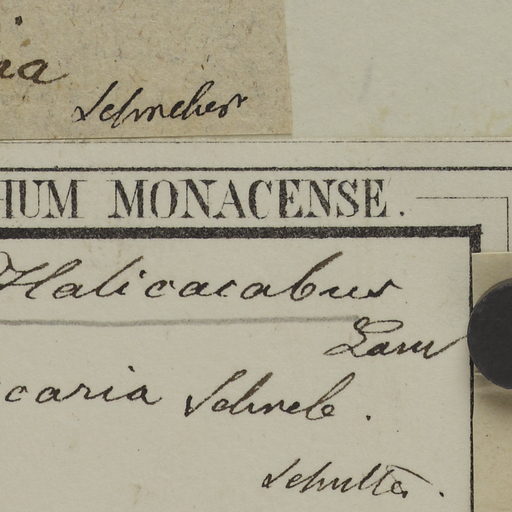 ia
Schreber
HUM MONACENSE.
Halicacabus
Lam
caria Schreb.
Schultes.